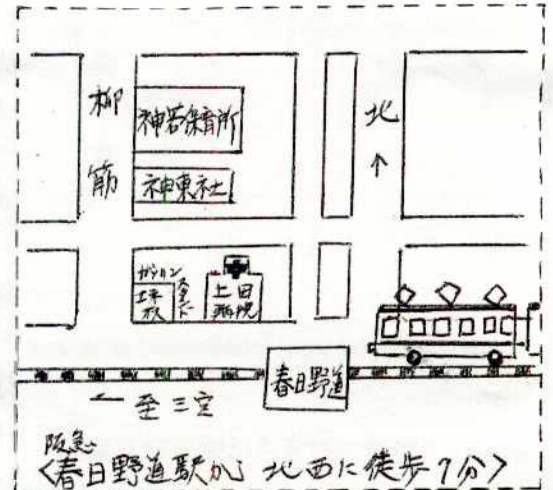 柳筋
神若保育所
神東社
北
↑
ガソリン
スタンド
上田
病院
春日野道
← 至三宮
阪急
<春日野道駅から 北西に徒歩7分>